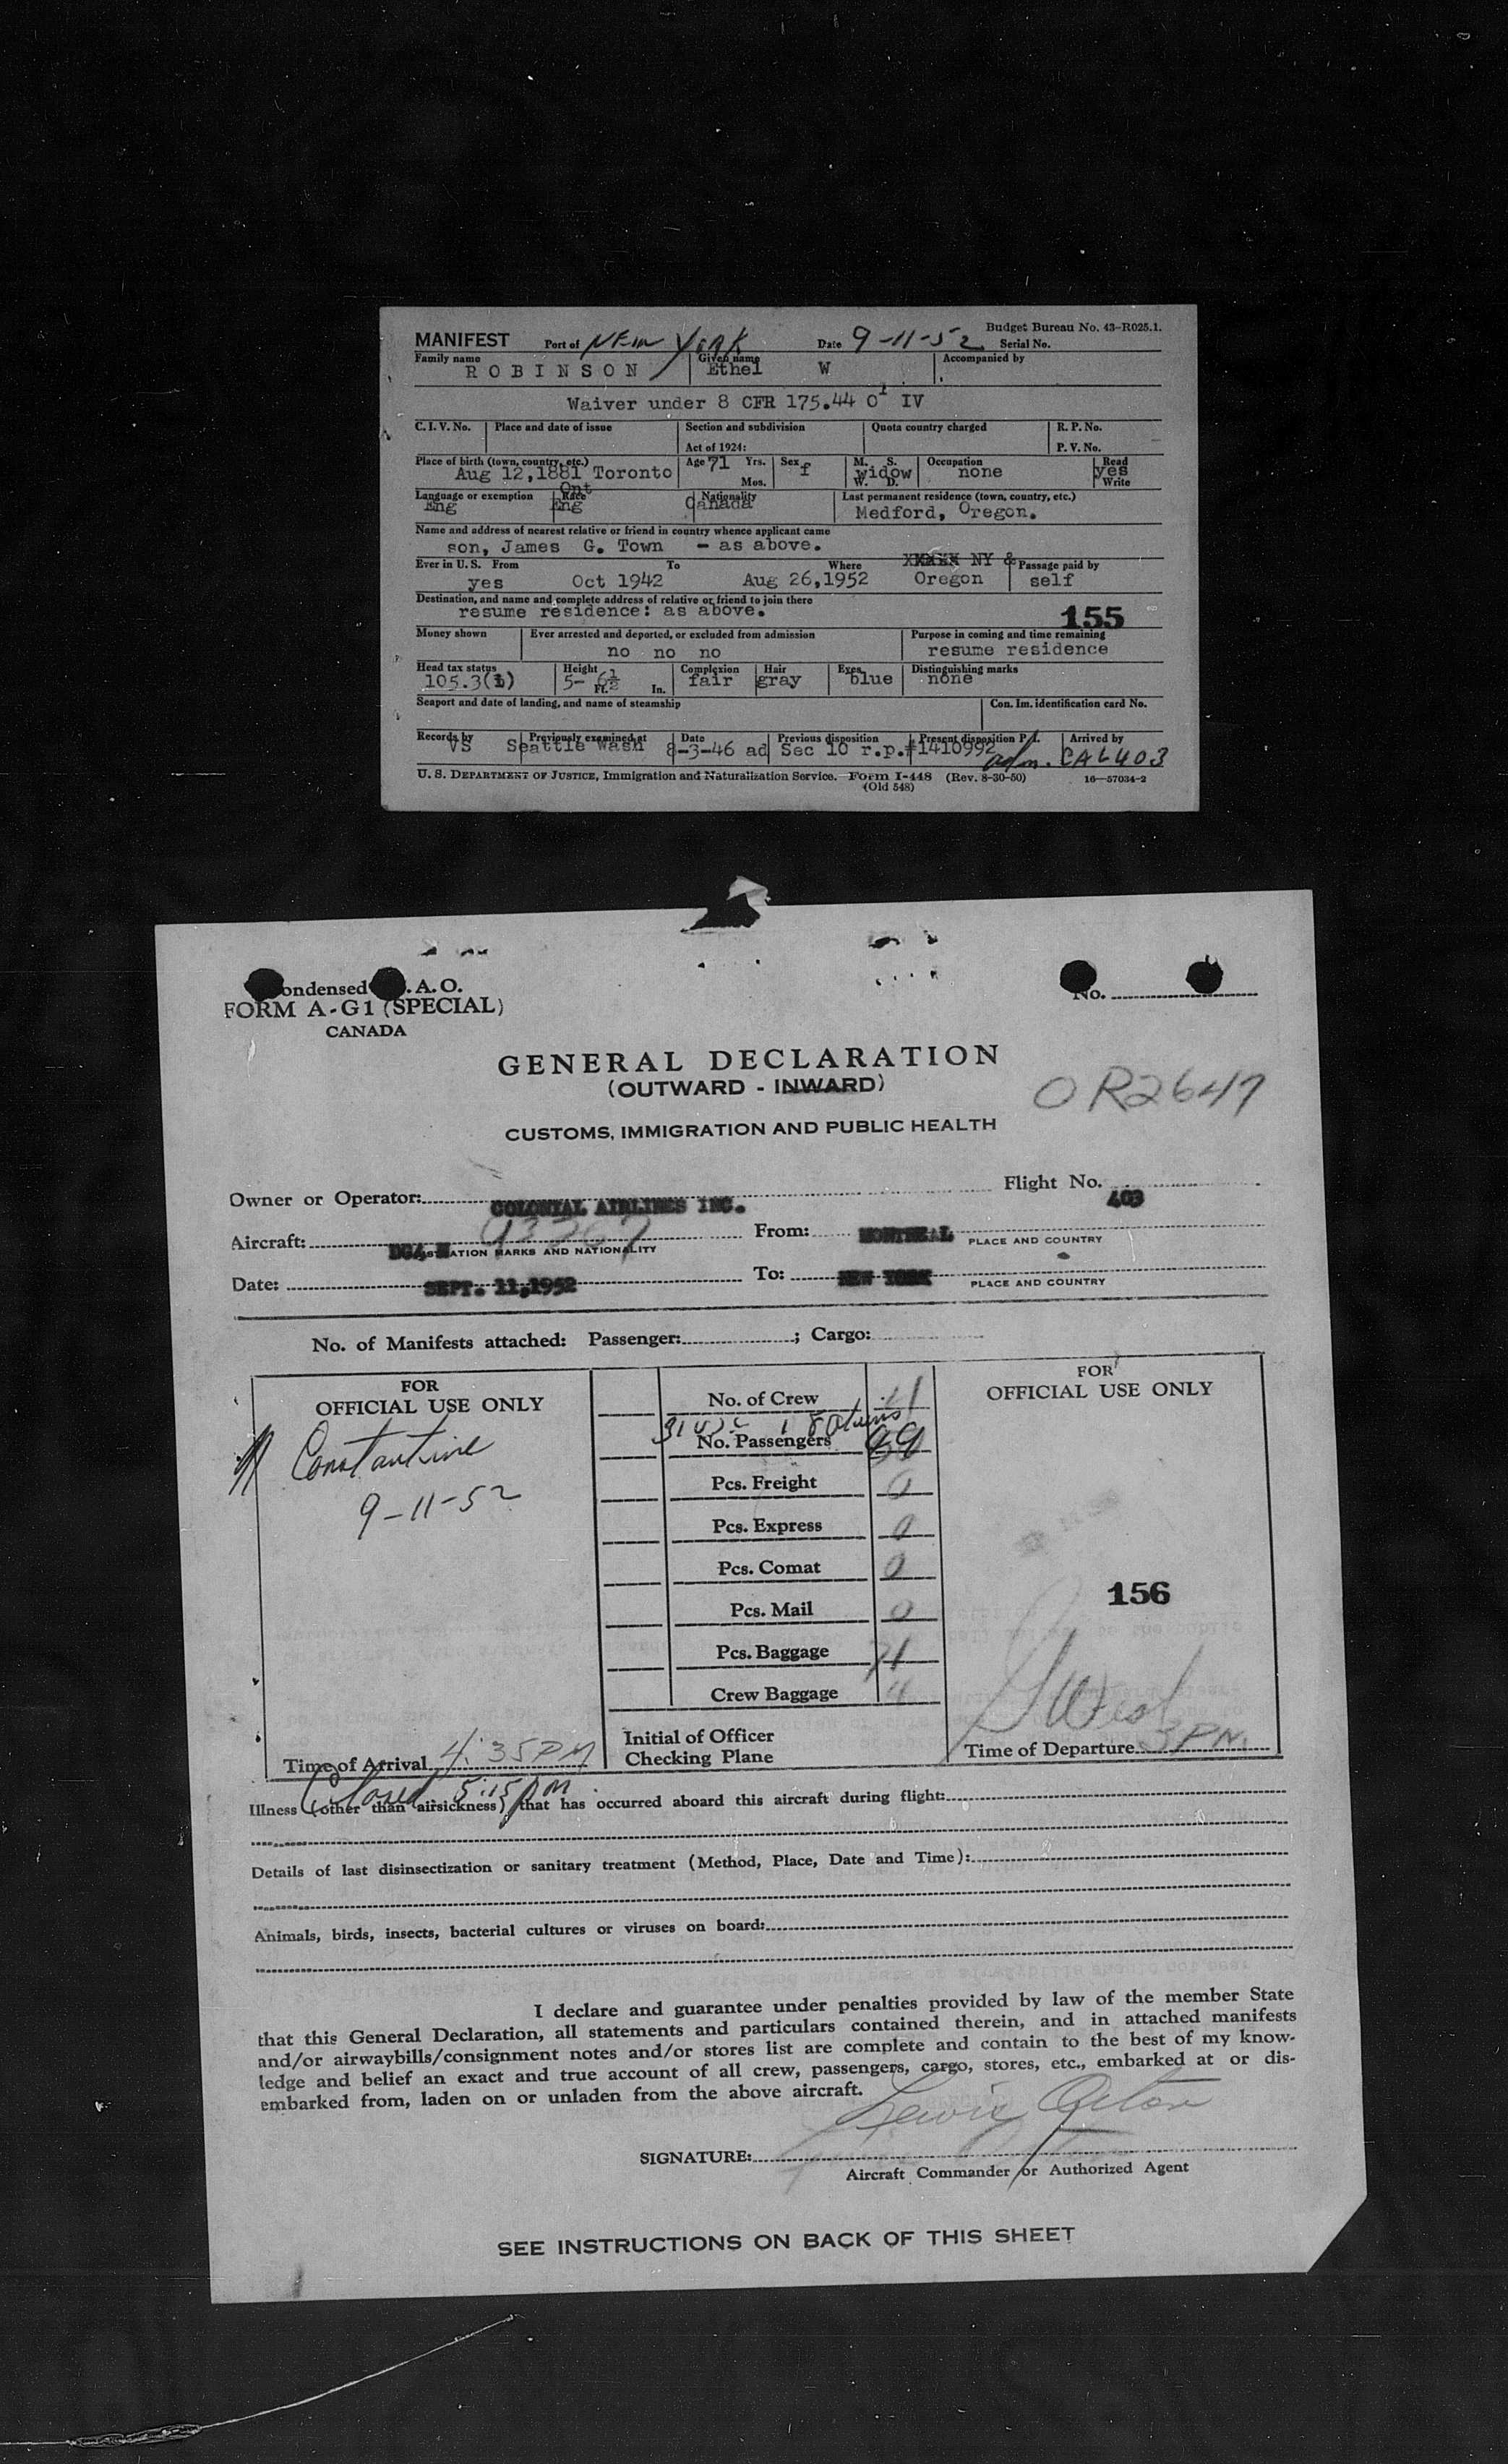 Budget Bureau No. 43-R025.1.
MANIFEST Port of NEW YORK Date 9-11-52 Serial No.
Family name Given name Accompanied by
ROBINSON Ethel W
Waiver under 8 CFR 175.44 O IV
C. I. V. No. Place and date of issue Section and subdivision Quota country charged R. P. No.
Act of 1924: P. V. No.
Place of birth (town, country, etc.) Age 71 Yrs. Sex f M. S. Occupation Read
Aug 12,1881 Toronto Mos. widow none yes
Ont W. D. Write
Language or exemption Race Nationality Last permanent residence (town, country, etc.)
Eng Eng Canada Medford, Oregon.
Name and address of nearest relative or friend in country whence applicant came
son, James G. Town - as above.
Ever in U. S. From To Where NY & Passage paid by
yes Oct 1942 Aug 26,1952 Oregon self
Destination, and name and complete address of relative or friend to join there
resume residence: as above. 155
Money shown Ever arrested and deported, or excluded from admission Purpose in coming and time remaining
no no no resume residence
Head tax status Height Complexion Hair Eyes Distinguishing marks
105.3(b) 5- 6½ Ft. In. fair gray blue none
Seaport and date of landing, and name of steamship Con. Im. identification card No.
Records by Previously examined at Date Previous disposition Present disposition P. I. Arrived by
VS Seattle Wash 8-3-46 ad Sec 10 r.p.#1410992 adm. CAL403
U. S. DEPARTMENT OF JUSTICE, Immigration and Naturalization Service. Form I-448 (Rev. 8-30-50) 16—57034-2
(Old 548)
ondensed .A.O.
FORM A-G1 (SPECIAL) No.
CANADA
GENERAL DECLARATION
(OUTWARD - INWARD)
OR2647
CUSTOMS, IMMIGRATION AND PUBLIC HEALTH
Owner or Operator: COLONIAL AIRLINES INC. Flight No. 403
Aircraft: DC4 N 93267 From: MONTREAL PLACE AND COUNTRY
MARKS AND NATIONALITY
Date: SEPT. 11,1952 To: NEW YORK PLACE AND COUNTRY
No. of Manifests attached: Passenger: ; Cargo:
FOR OFFICIAL USE ONLY
Constantine
9-11-52
Time of Arrival 4:35PM
Closed 5:15 PM
No. of Crew 4
No. Passengers 49
Pcs. Freight 0
Pcs. Express 0
Pcs. Comat 0
Pcs. Mail 0
Pcs. Baggage 71
Crew Baggage 4
Initial of Officer
Checking Plane
FOR
OFFICIAL USE ONLY
156
Time of Departure 3 PM.
Illness (other than airsickness) that has occurred aboard this aircraft during flight:
Details of last disinsectization or sanitary treatment (Method, Place, Date and Time):
Animals, birds, insects, bacterial cultures or viruses on board:
I declare and guarantee under penalties provided by law of the member State
that this General Declaration, all statements and particulars contained therein, and in attached manifests
and/or airwaybills/consignment notes and/or stores list are complete and contain to the best of my know-
ledge and belief an exact and true account of all crew, passengers, cargo, stores, etc., embarked at or dis-
embarked from, laden on or unladen from the above aircraft.
SIGNATURE:
Aircraft Commander or Authorized Agent
SEE INSTRUCTIONS ON BACK OF THIS SHEET